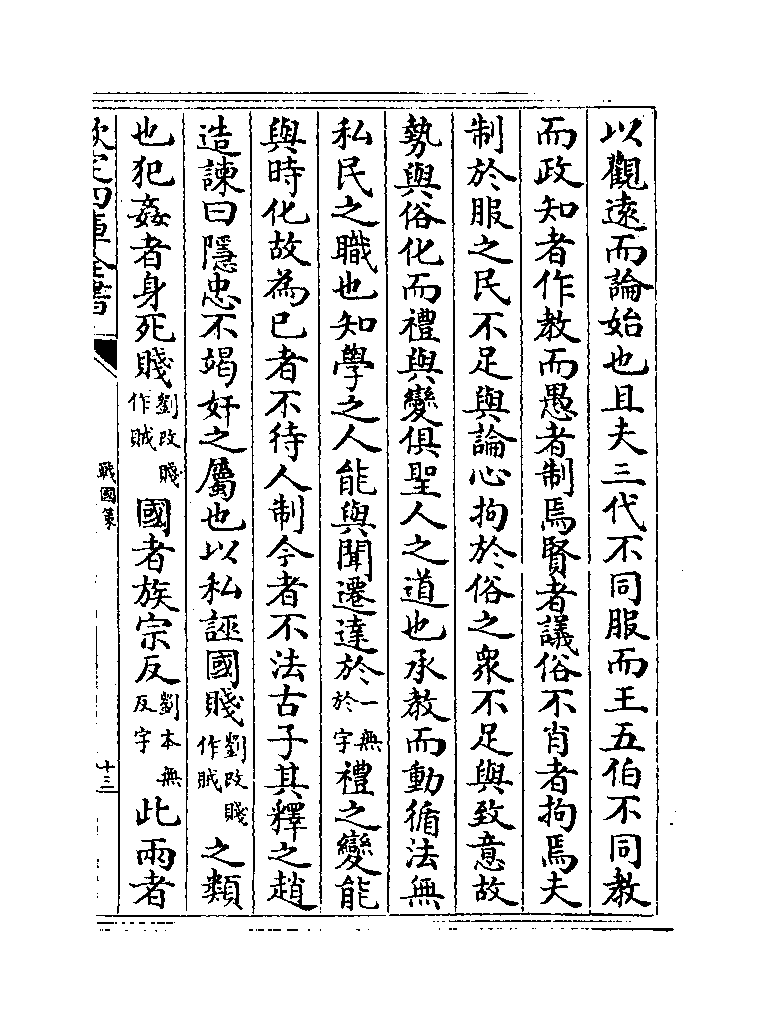 以觀逺而論始也且夫三代不同服而王五伯不同教
而政知者作教而愚者制焉賢者議俗不肖者拘焉夫
制於服之民不足與論心拘於俗之衆不足與致意故
勢與俗化而禮與變俱聖人之道也承教而動循法無
私民之職也知學之人能與聞遷達於一無於字禮之變能
與時化故為已者不待人制今者不法古子其釋之趙
造諫曰隱忠不竭奸之屬也以私誣國賤劉改賤作賊之類
也犯姦者身死賤劉改賤作賊國者族宗反劉本無反字此兩者
欽定四庫全書
戰國策
十三